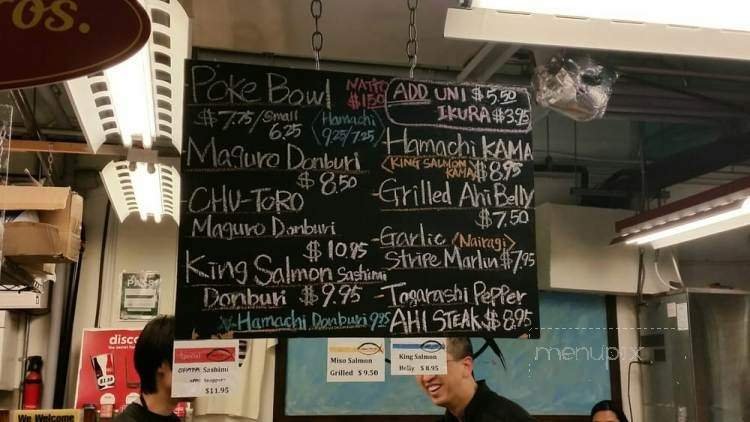 ros.
Poke Bowl NATTO $1.50
$7.75/Small 6.25
Hamachi 9.25/7.25
Maguro Donburi
$8.50
CHU-TORO
Maguro Donburi
$10.95
King Salmon Sashimi
Donburi $9.95
Hamachi Donburi 9.25
ADD UNI $5.50
IKURA $3.95
Hamachi KAMA
KING SALMON KAMA $8.95
-Grilled Ahi Belly
$7.50
-Garlic Nairagi
Stripe Marlin $7.95
-Togarashi Pepper
AHI STEAK $8.95
PASS
disco
$1.00
We Welcome
Special
Sashimi
$11.95
Miso Salmon
Grilled $ 9.50
King Salmon
Belly $ 8.95
menupix